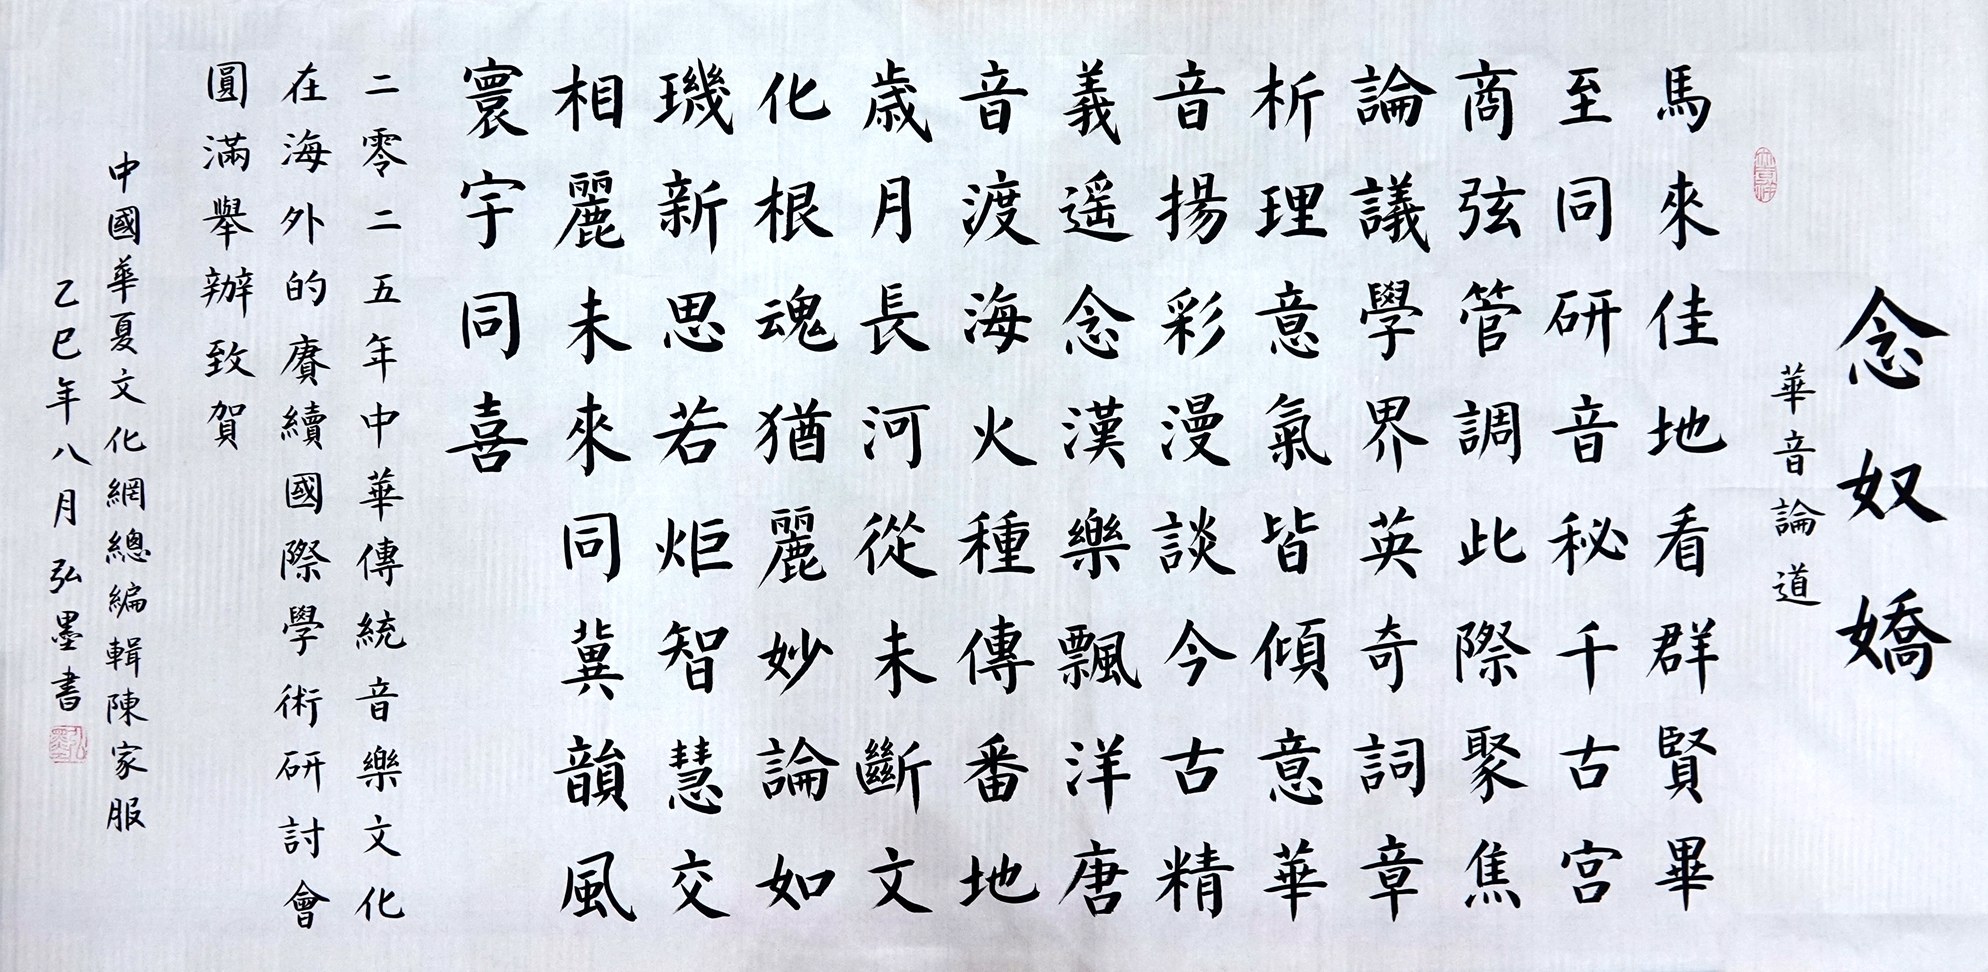 念奴嬌
華音論道
馬來佳地看群賢畢
至同研音秘千古宫
商弦管調此際聚焦
論議學界英奇詞章
析理意氣皆傾意華
音揚彩漫談今古精
義遥念漢樂飄洋唐
音渡海火種傳番地
歲月長河從未斷文
化根魂猶麗妙論如
璣新思若炬智慧交
相麗未來同冀韻風
寰宇同喜
二零二五年中華傳統音樂文化
在海外的賡續國際學術研討會
圓滿舉辦致賀
中國華夏文化網總編輯陳家服
乙巳年八月弘墨書
弘墨